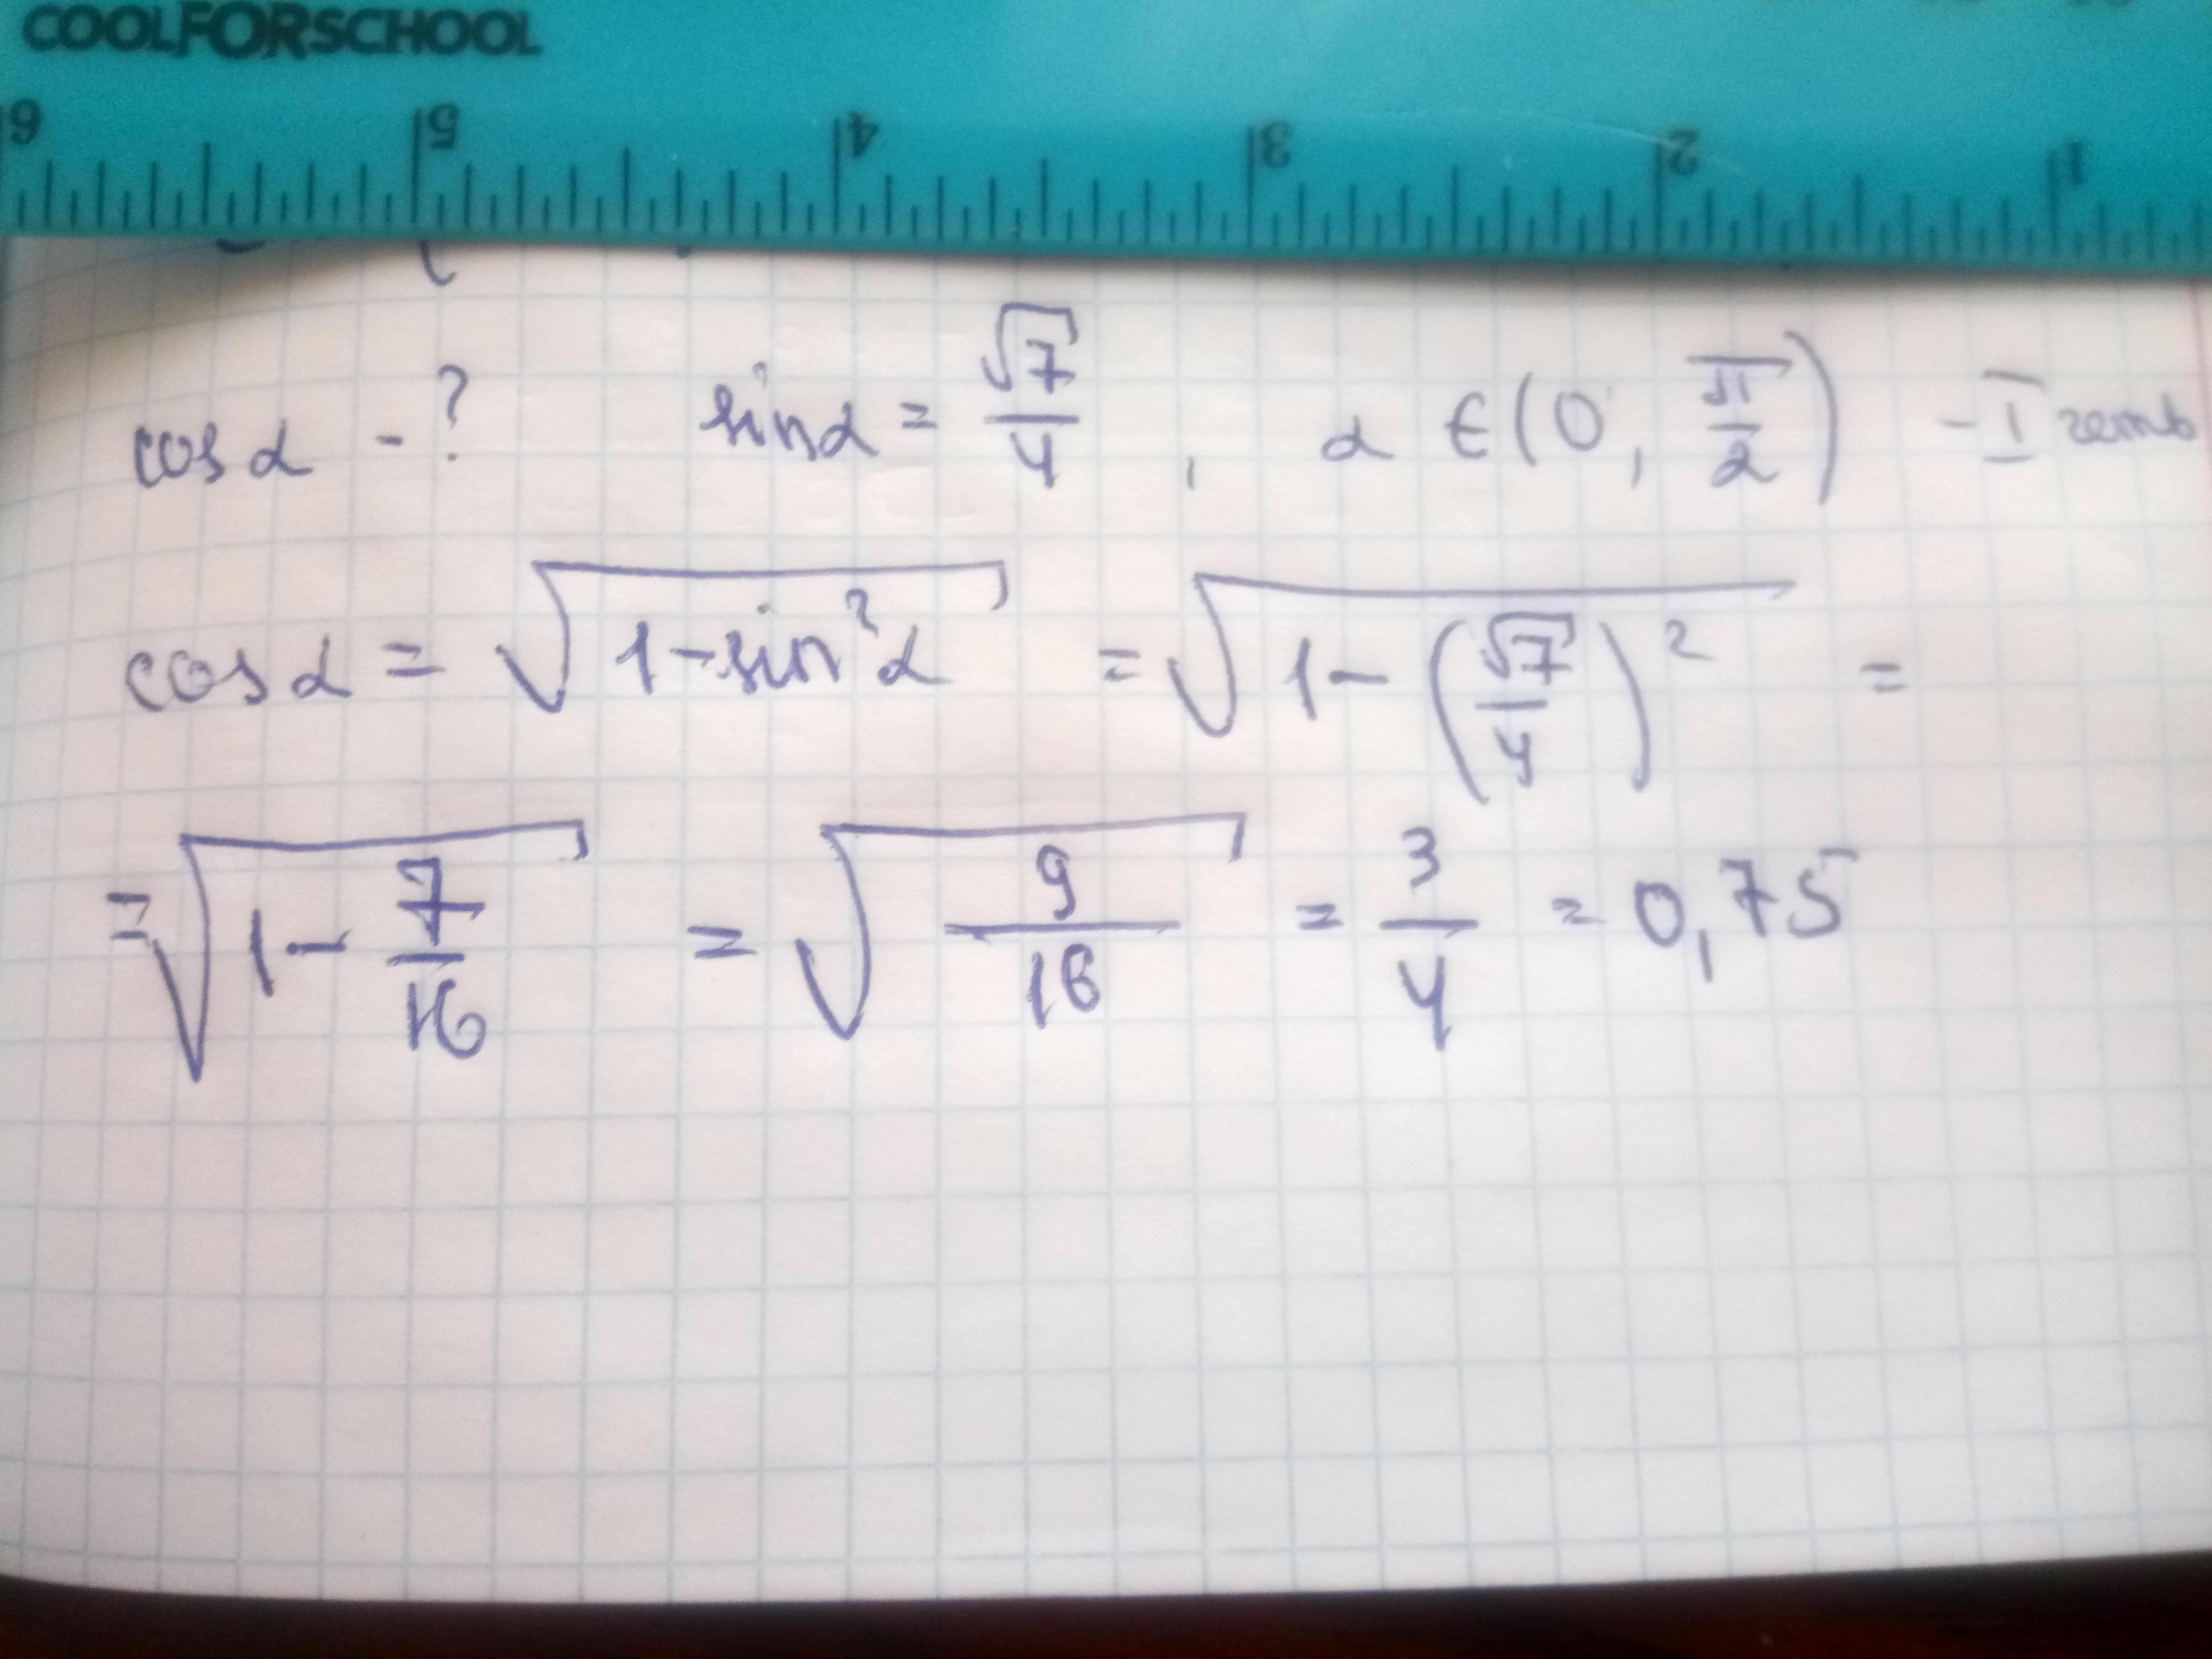 COOLFORSCHOOL
6 5 4 3 2 1
cos α - ? sin α = √7/4 , α ∈ (0, π/2) - I четв
cos α = √(1 - sin²α) = √(1 - (√7/4)²) =
= √(1 - 7/16) = √(9/16) = 3/4 = 0,75